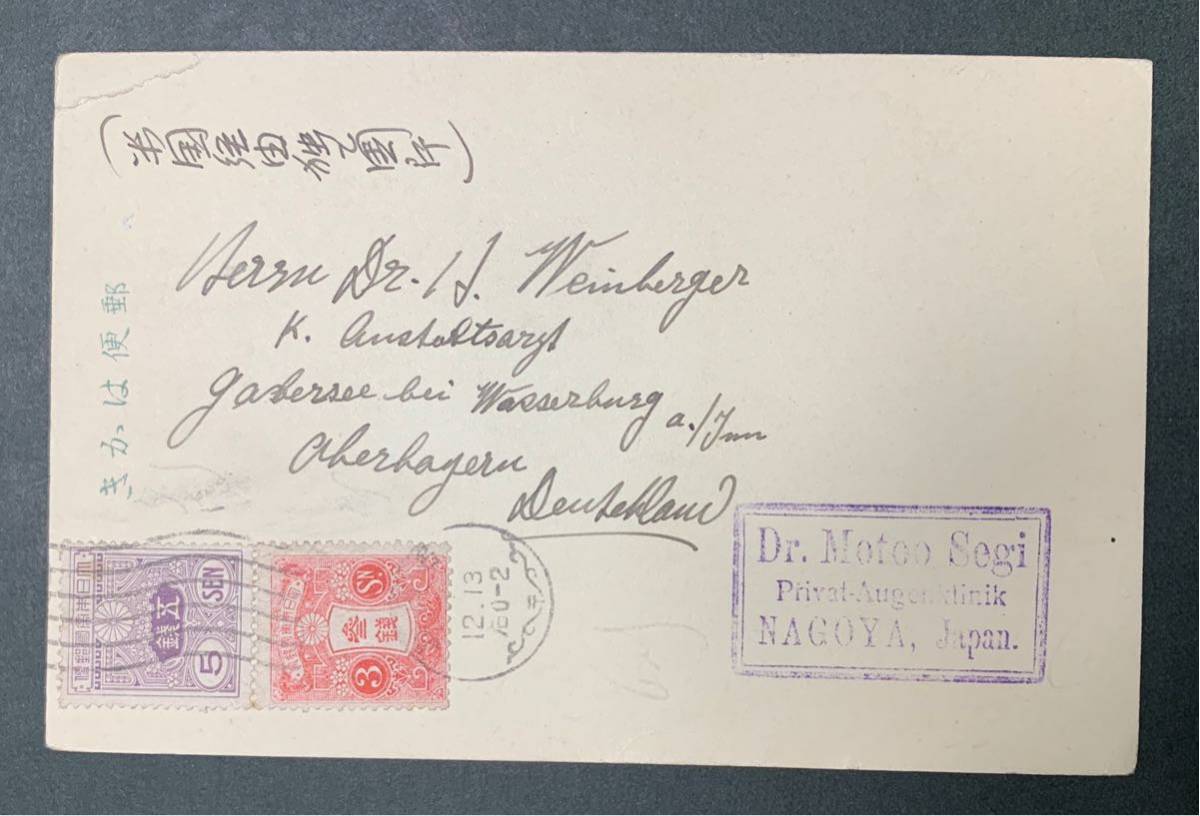 (米国経由独乙国行)
Herrn Dr. J. Weinberger
K. Anstaltsarzt
Gabersee bei Wasserburg a./Inn
Oberbayern
Deutschland
郵便はかき
5 SEN
五錢
3 SN
参錢
12.13
Dr. Motoo Segi
Privat-Augenklinik
NAGOYA, Japan.